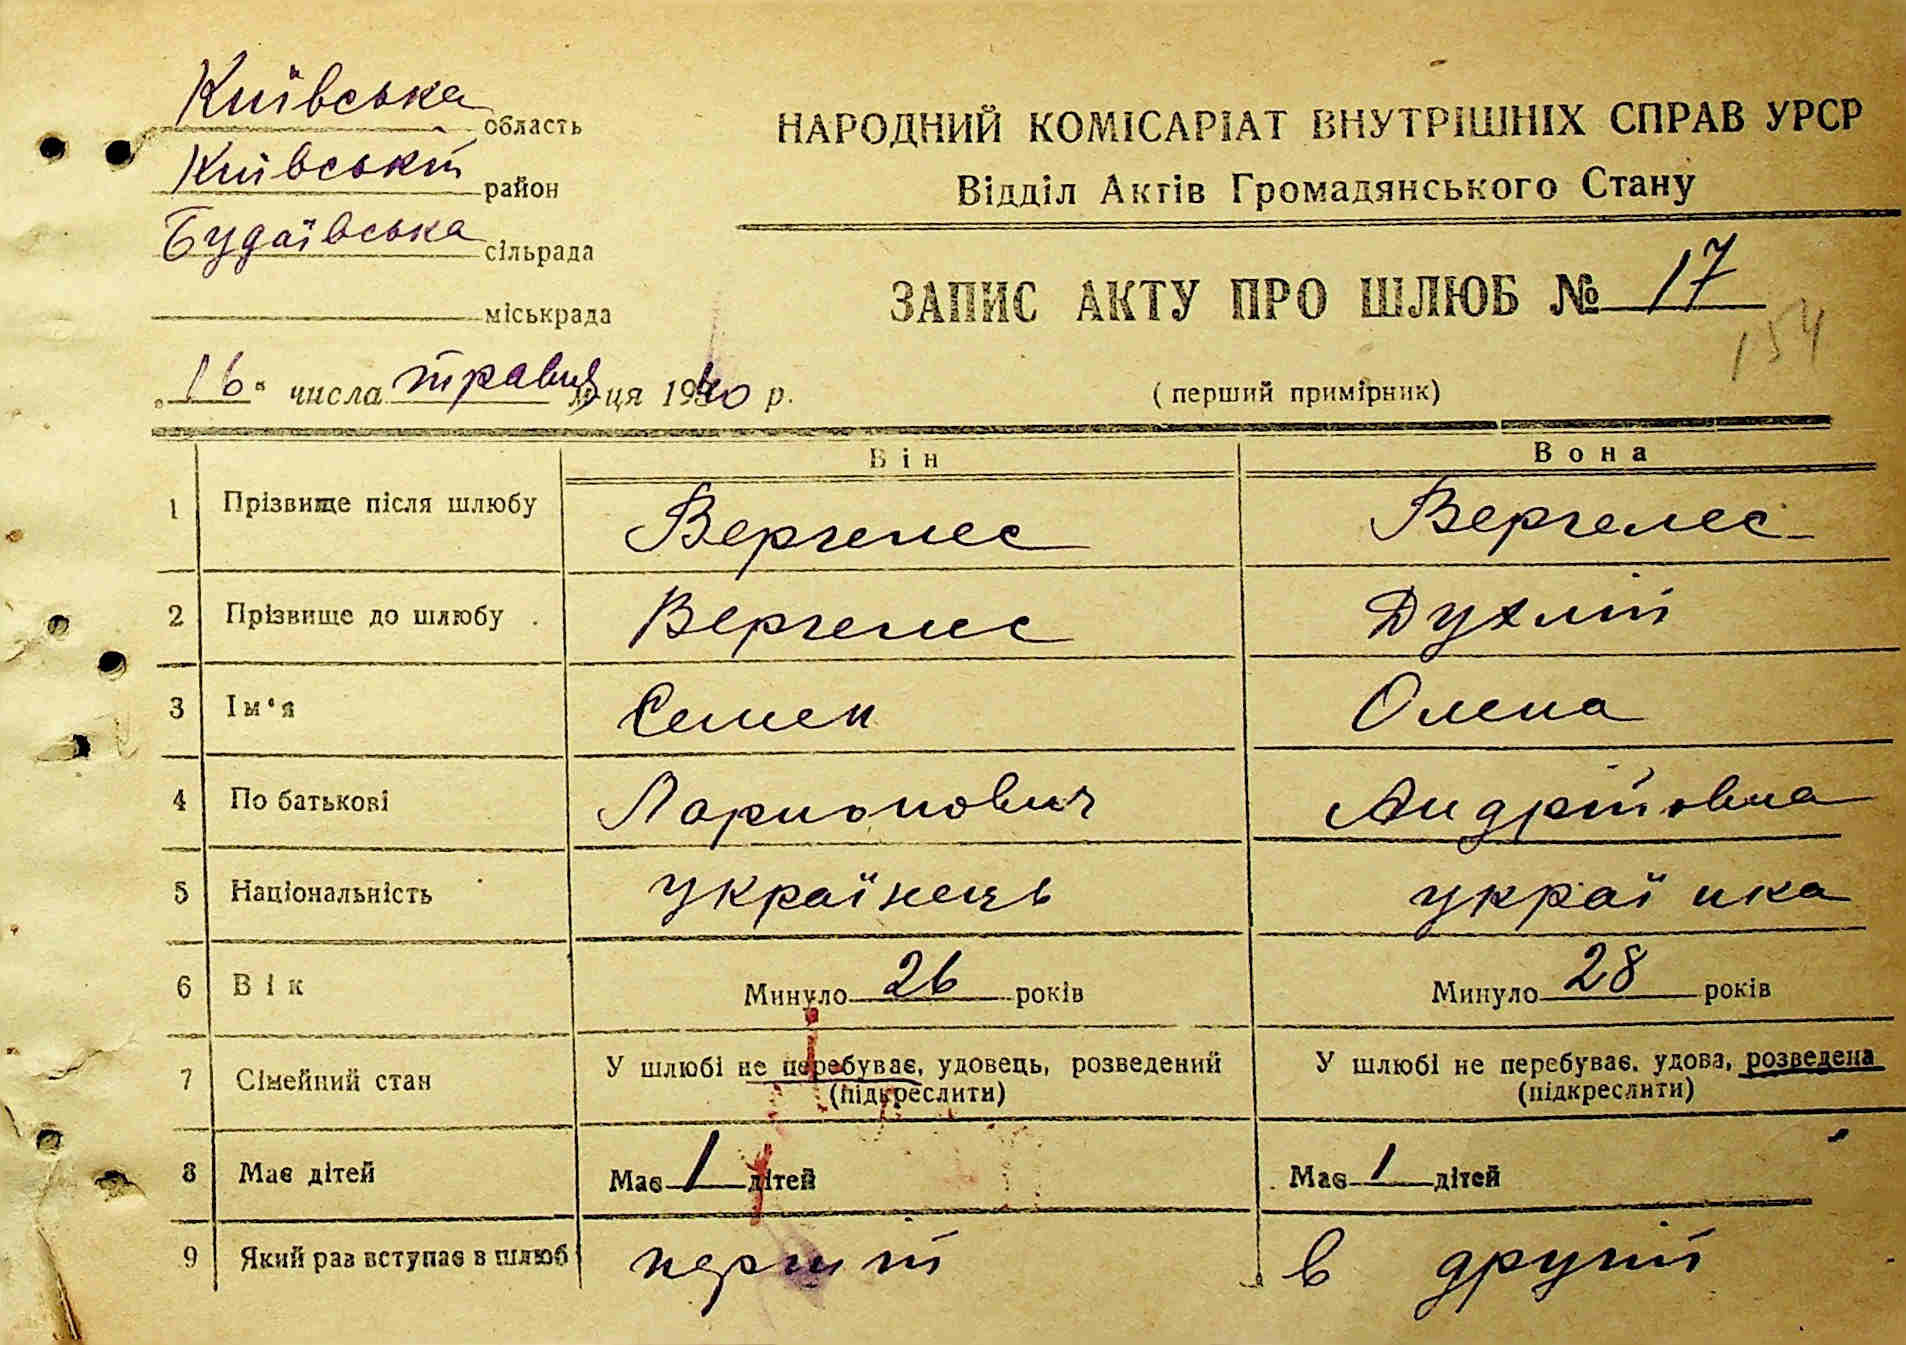 Київська область
Київський район
Будаївська сільрада
міськрада
НАРОДНИЙ КОМІСАРІАТ ВНУТРІШНІХ СПРАВ УРСР
Відділ Актів Громадянського Стану
ЗАПИС АКТУ ПРО ШЛЮБ № 17
154
„16“ числа травня м-ця 1940 р.
(перший примірник)
Він Вона
1 Прізвище після шлюбу Вергелес Вергелес
2 Прізвище до шлюбу Вергелес Духлій
3 Ім'я Семен Олена
4 По батькові Ларионович Андрійовна
5 Національність українець українка
6 Вік Минуло 26 років Минуло 28 років
7 Сімейний стан У шлюбі не перебуває, удовець, розведений У шлюбі не перебуває, удова, розведена
(підкреслити) (підкреслити)
8 Має дітей Має 1 дітей Має 1 дітей
9 Який раз вступає в шлюб перший в другий